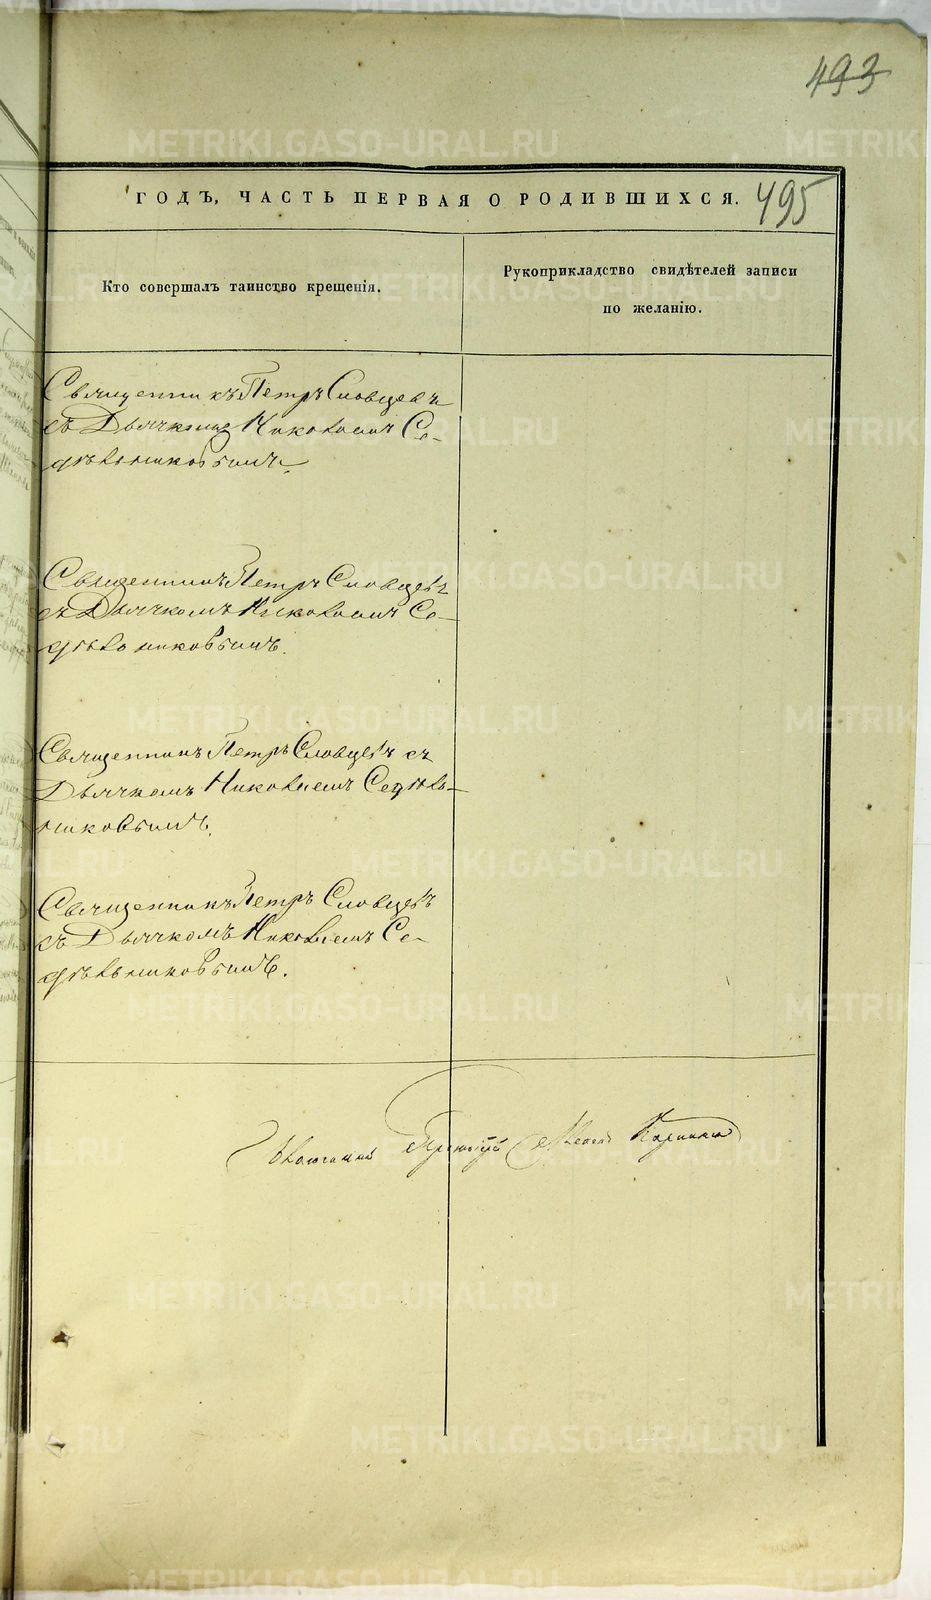 493
ГОДЪ, ЧАСТЬ ПЕРВАЯ О РОДИВШИХСЯ.
495
Кто совершалъ таинство крещенія.
Рукоприкладство свидѣтелей записи
по желанію.
Священникъ Петръ Словцевъ
съ Дьячкомъ Николаемъ Се-
дѣльниковымъ.
Священникъ Петръ Словцевъ
съ Дьячкомъ Николаемъ Се-
дѣльниковымъ.
Священникъ Петръ Словцевъ съ
Дьячкомъ Николаемъ Седѣль-
никовымъ.
Священникъ Петръ Словцевъ
съ Дьячкомъ Николаемъ Се-
дѣльниковымъ.
METRIKI.GASO-URAL.RU